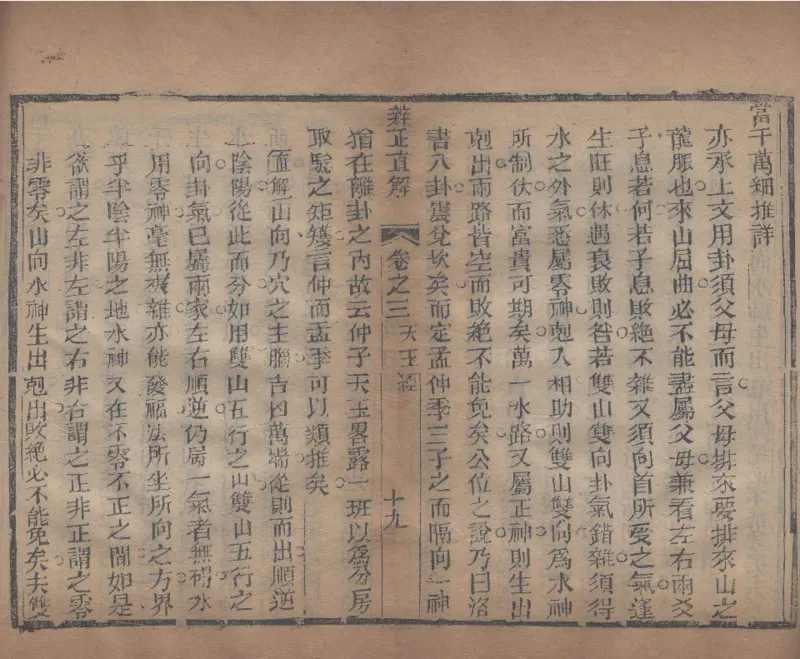 當千萬細推詳
亦承上文用卦須父母而言父母排來要排來山之
龍脈也來山屈曲必不能盡屬父母兼看左右兩爻
子息若何若子息敗絕不雜又須向首所受之氣逢
生旺則休遇衰敗則咎若雙山雙向卦氣錯雜須得
水之外氣悉屬零神剋入相助則雙山雙向為水神
所制伏而富貴可期矣萬一水路又屬正神則生出
剋出兩路皆空而敗絕不能免矣公位之說乃曰洛
書八卦震兌坎矣而定孟仲季三子之而隔向一神
辨正直解
卷之三
天玉經
十九
猶在離卦之內故云仲子天玉畧露一班以爲分房
取驗之矩矱言仲而孟季可以類推矣
直解山向乃穴之主腦吉凶萬端從則而出順逆
陰陽從此而分如用雙山五行之山雙山五行之
向卦氣已屬兩家左右順逆仍居一氣者無禍水
用零神毫無夾雜亦能發福法所坐所向之方界
乎半陰半陽之地水神又在不零不正之間如是
欲謂之左非左謂之右非右謂之正非正謂之零
非零矣山向水神生出剋出敗絕必不能免矣夫雙